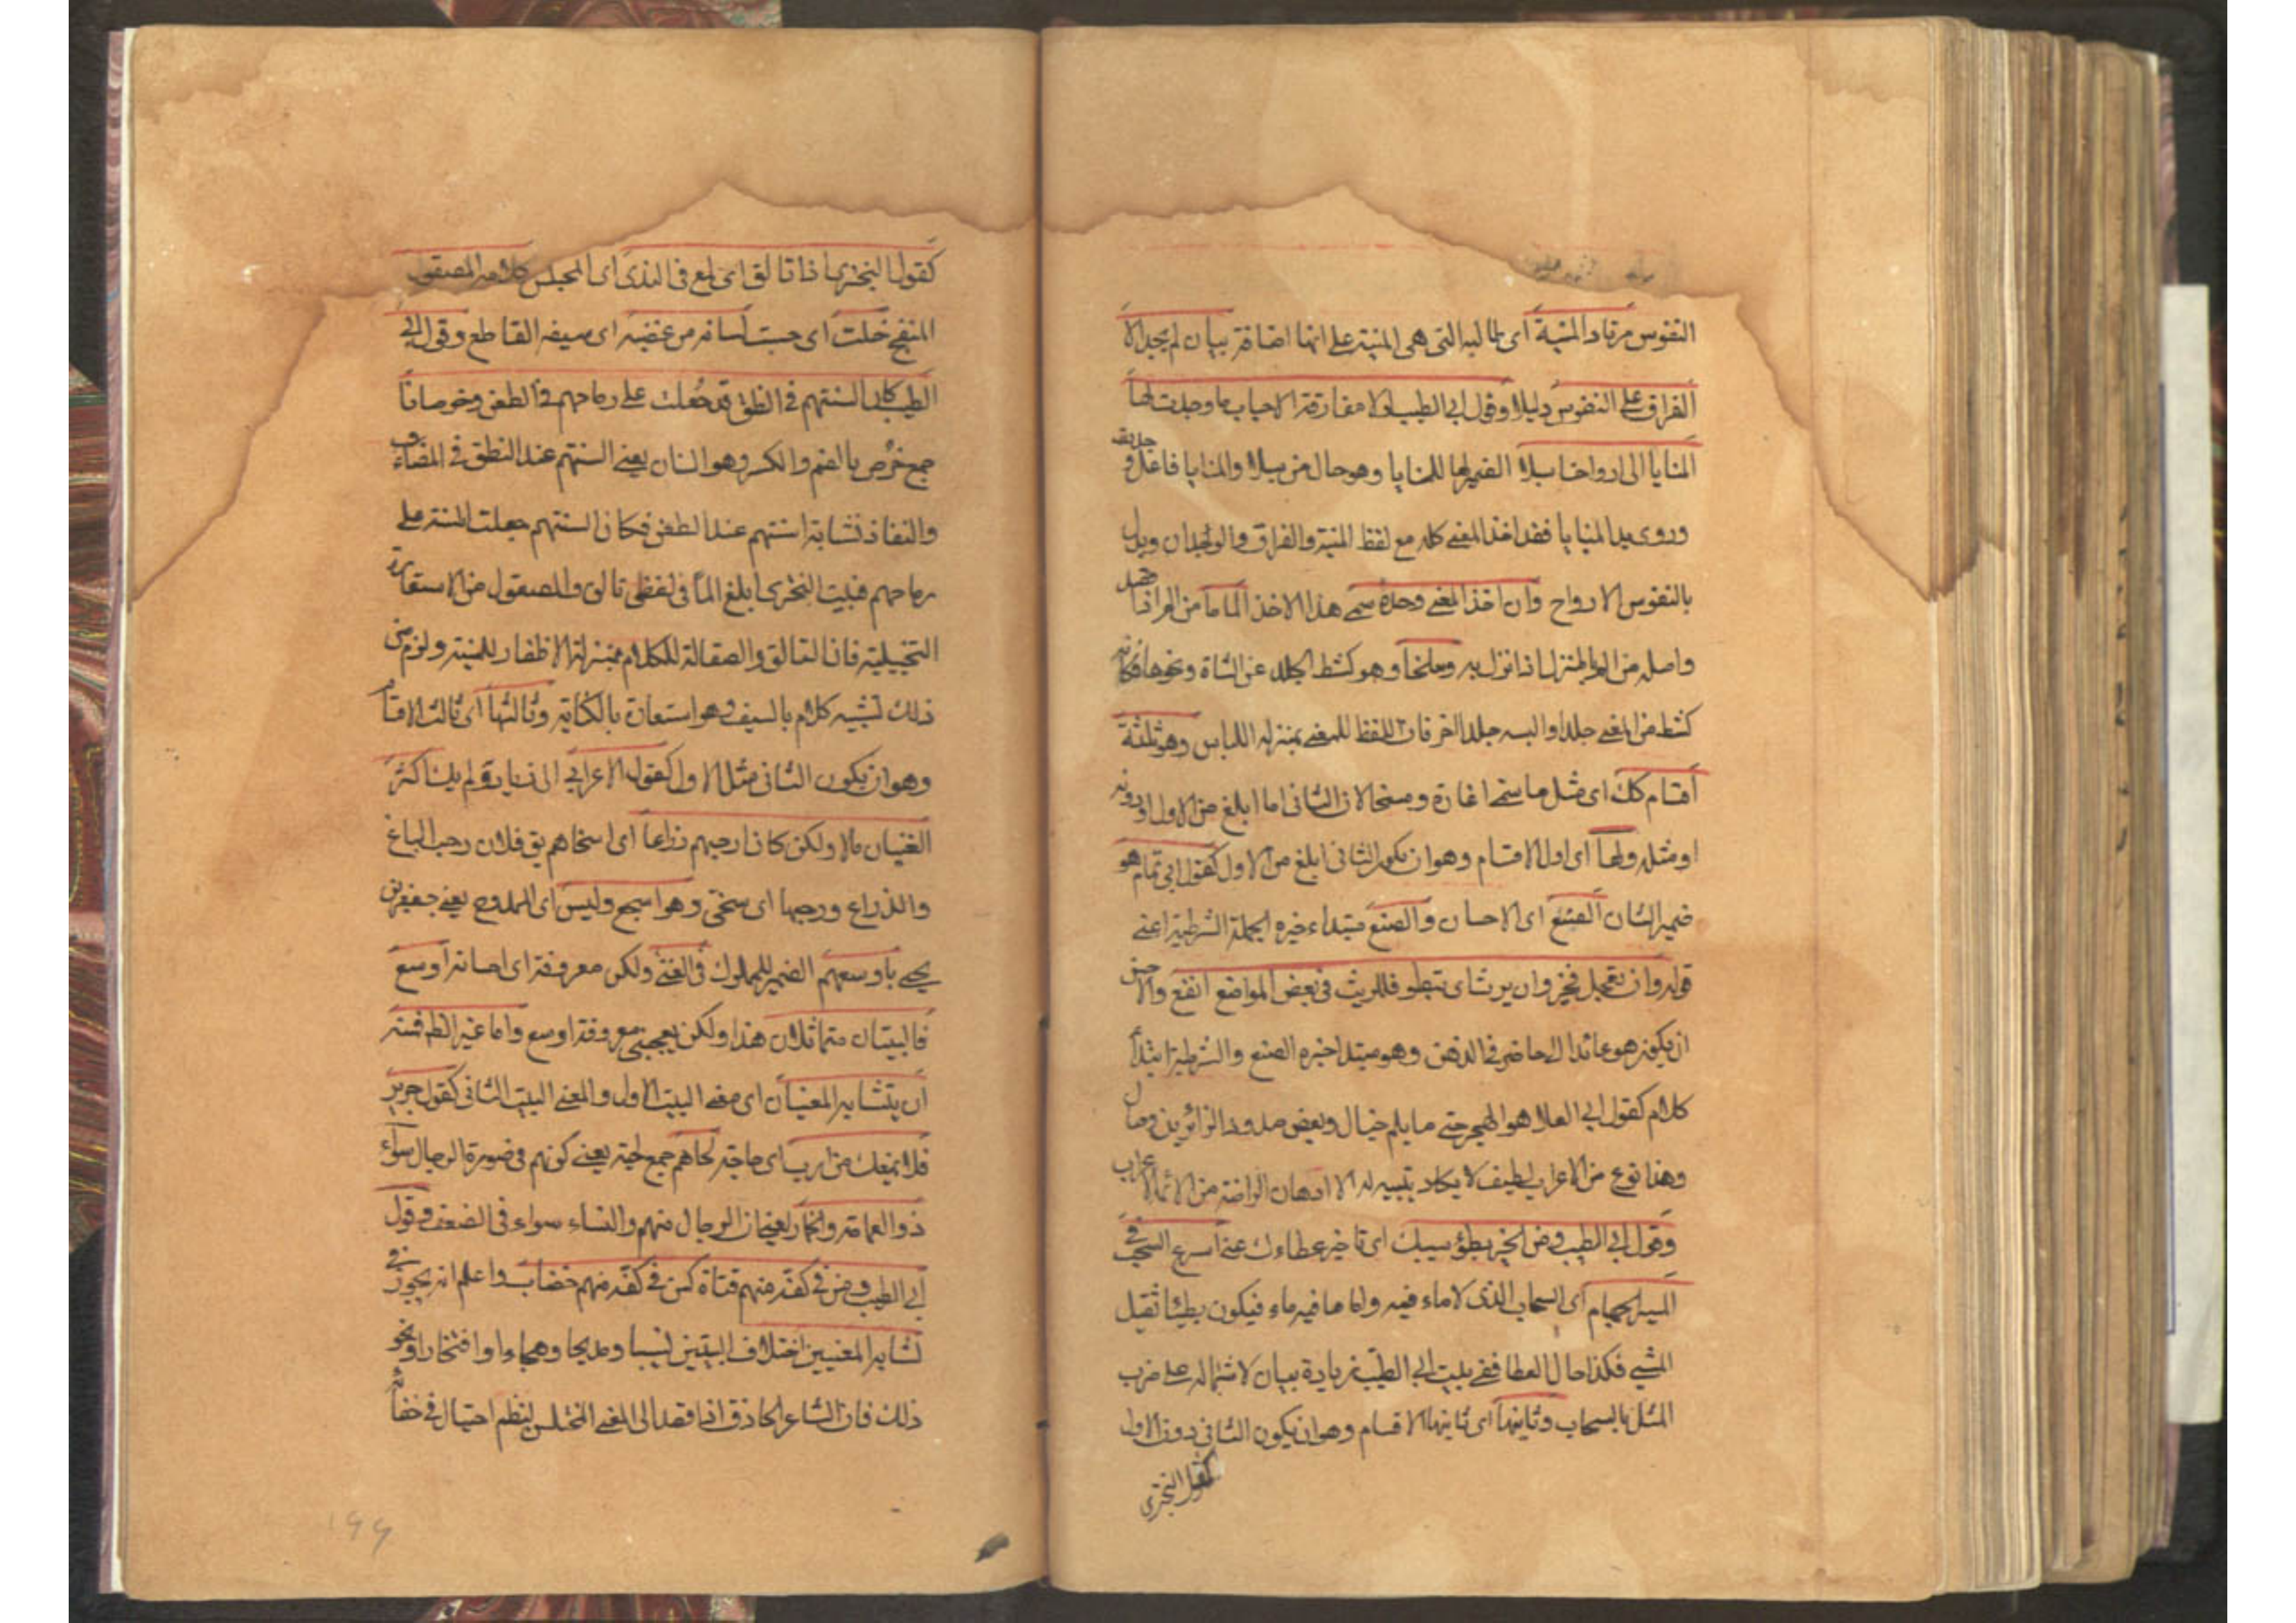 النفوس مرتاد المنية اى طالبه التى هى المنية على انها اضافة بيان لم يجد الا
الفراق على النفوس دليلا وقول ابى الطيب لولا مفارقة الاحباب ما وجدت لها
المنايا الى ارواحنا سبلا الضمير لها للمنايا وهو حال من سبلا والمنايا فاعل وجدت و
وروى يد المنايا فقد اخذ المعنى كله مع لفظ المنية والفراق والوجدان وبدل
بالنفوس الارواح وان اخذ المعنى وحده سمى هذا الاخذ الماما من الم اذا قصد
واصله من الم بالمنزل اذا نزل به وسلخا وهو كشط الجلد عن الشاة ونحوها فكانه
كشط من المعنى جلدا والبسه جلدا اخر فان اللفظ للمعنى بمنزلة اللباس وهو ثلثة
اقسام كك اى مثل ما سمى اغارة ومسخا لان الثانى اما ابلغ من الاول او دونه
او مثله اولها اى اول الاقسام وهو ان يكون الثانى ابلغ من الاول كقول ابى تمام هو
ضمير الشان الصنع اى الاحسان والصنع مبتداء خبره الجملة الشرطية اعنى
قوله وان يعجل فخير وان يرث اى يبطؤ فللريث فى بعض المواضع انفع والاحسن
ان يكون هو عائدا الى حاضر فى الذهن وهو مبتدا خبره الصنع والشرطية ابتداء
كلام كقول ابى العلا هو الهجر حتى ما يلم خيال وبعض صدود الزائرين وصال
وهذا نوع من الاعراب لطيف لا يكاد يتنبه له الا الاذهان الراضة من الائمة الاعراب
وقول ابى الطيب ومن الخير بطؤ سيبك اى تاخير عطاءك عنى اسرع السحب فى
المسير الجهام اى السحاب الذى لا ماء فيه واما ما فيه ماء فيكون بطيئا ثقيل
المشى فكذا حال العطا ففى بيت ابى الطيب زيادة بيان لاشتماله على ضرب
المثل بالسحاب وثانيها اى ثانى الاقسام وهو ان يكون الثانى دون الاول
كقول البحترى
كقول البحترى اذا تالق اى لمع فى الندى اى المجلس كلامه المصقول
المنقح خلت اى حسبت لسانه من عضبه اى سيفه القاطع وقول ابى
الطيب كان السنتهم فى النطق قد جعلت على رماحهم فى الطعن خرصانا
جمع خرص بالضم والكسر وهو السنان يعنى السنتهم عند النطق فى المضاء
والنفاذ تشابه اسنتهم عند الطعن فكان السنتهم جعلت اسنة على
رماحهم فبيت البحترى ابلغ لما فى لفظى تالق والمصقول من الاستعارة
التخييلية فان التالق والصقالة للكلام بمنزلة الاظفار للمنية ولزم من
ذلك تشبيه كلامه بالسيف وهو استعارة بالكناية وثالثها اى ثالث الاقسام
وهو ان يكون الثانى مثل الاول كقول الاعرابى ابى زياد ولم يك اكثر
الفتيان مالا ولكن كان ارحبهم ذراعا اى اسخاهم يق فلان رحب الباع
والذراع ورحبها اى سخى وهو اشجع وليس اى الممدوح يعنى جعفر بن
يحيى باوسعهم الضمير للملوك فى الغنى ولكن معروفه اى احسانه اوسع
فالبيتان متماثلان هذا ولكن يعجبنى معروفه اوسع واما غير الظ فمنه
ان يتشابه المعنيان اى معنى البيت الاول والمعنى البيت الثانى كقول جرير
فلا يمنعك من ارب اى حاجة لحاهم جمع لحية يعنى كونهم فى صورة الرجال سواء
ذو العمامة والخمار يعنى ان الرجال منهم والنساء سواء فى الضعف وقول
ابى الطيب ومن فى كفه منهم قناة كمن فى كفه منهم خضاب واعلم انه يجوز فى
تشابه المعنيين اختلاف البيتين نسيبا ومديحا وهجاء وافتخارا ونحو
ذلك فان الشاعر الحاذق اذا قصد الى المعنى المختلس لينظم احتال فى اخفائه
۱۹۹